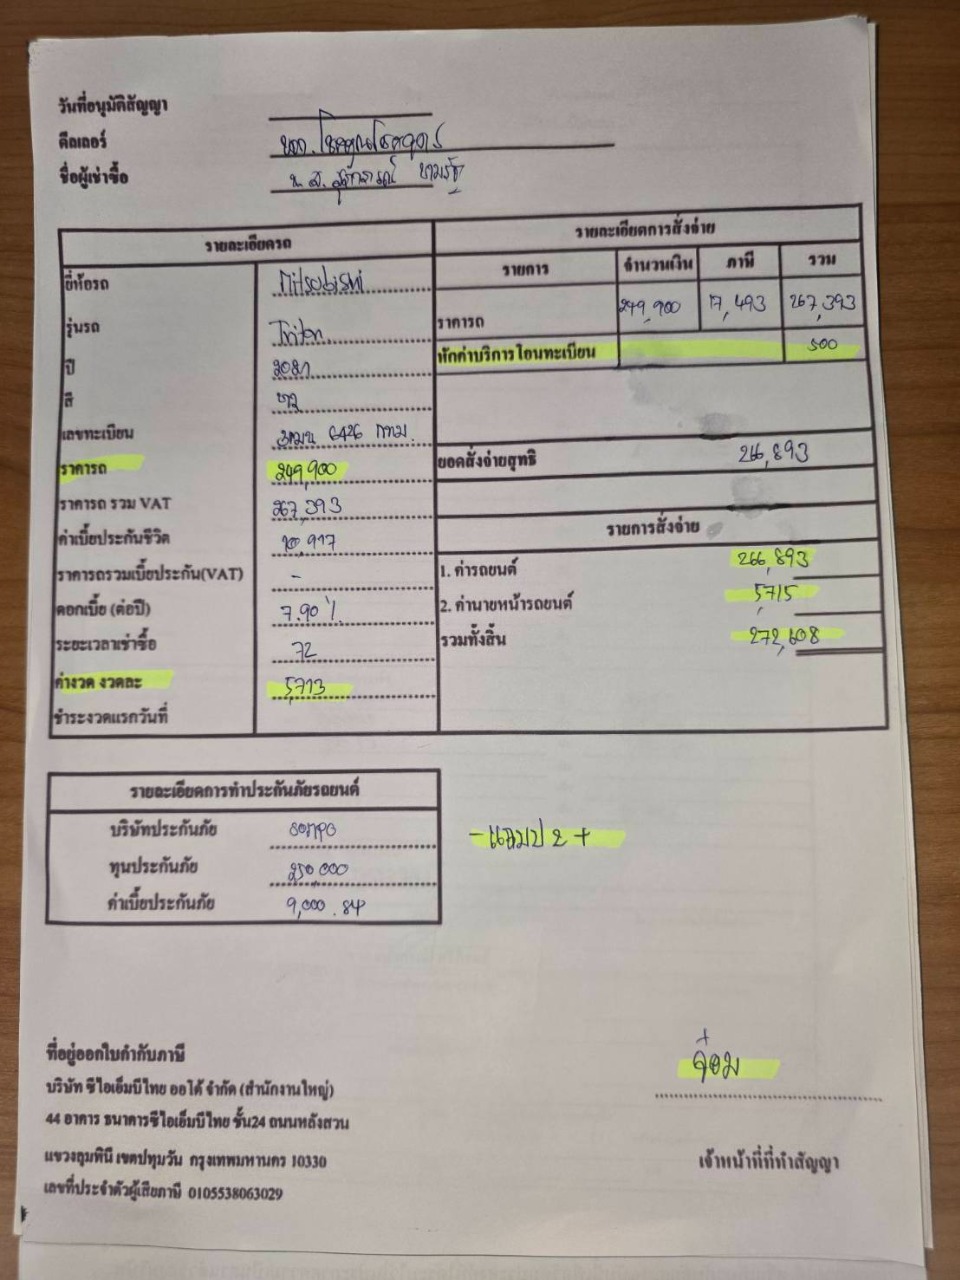 วันที่อนุมัติสัญญา
ดีลเลอร์ บจก.
ชื่อผู้เช่าซื้อ น.ส.
รายละเอียดรถ
ยี่ห้อรถ Mitsubishi
รุ่นรถ Triton
ปี
สี
เลขทะเบียน 6426 กทม.
ราคารถ 249,900
ราคารถ รวม VAT 267,393
ค่าเบี้ยประกันชีวิต 10,917
ราคารถรวมเบี้ยประกัน(VAT) -
ดอกเบี้ย (ต่อปี) 7.90 %
ระยะเวลาเช่าซื้อ 72
ค่างวด งวดละ 5,713
ชำระงวดแรกวันที่
รายละเอียดการสั่งจ่าย
รายการ จำนวนเงิน ภาษี รวม
ราคารถ 249,900 17,493 267,393
หักค่าบริการโอนทะเบียน 500
ยอดสั่งจ่ายสุทธิ 266,893
รายการสั่งจ่าย
1. ค่ารถยนต์ 266,893
2. ค่านายหน้ารถยนต์ 5,715
รวมทั้งสิ้น 272,608
รายละเอียดการทำประกันภัยรถยนต์
บริษัทประกันภัย sompo
ทุนประกันภัย 250,000
ค่าเบี้ยประกันภัย 9,000.84
- แคมป 2+
ที่อยู่ออกใบกำกับภาษี
บริษัท ซีไอเอ็มบีไทย ออโต้ จำกัด (สำนักงานใหญ่)
44 อาคาร ธนาคารซีไอเอ็มบีไทย ชั้น24 ถนนหลังสวน
แขวงลุมพินี เขตปทุมวัน กรุงเทพมหานคร 10330
เลขที่ประจำตัวผู้เสียภาษี 0105538063029
จ๋อม
เจ้าหน้าที่ที่ทำสัญญา